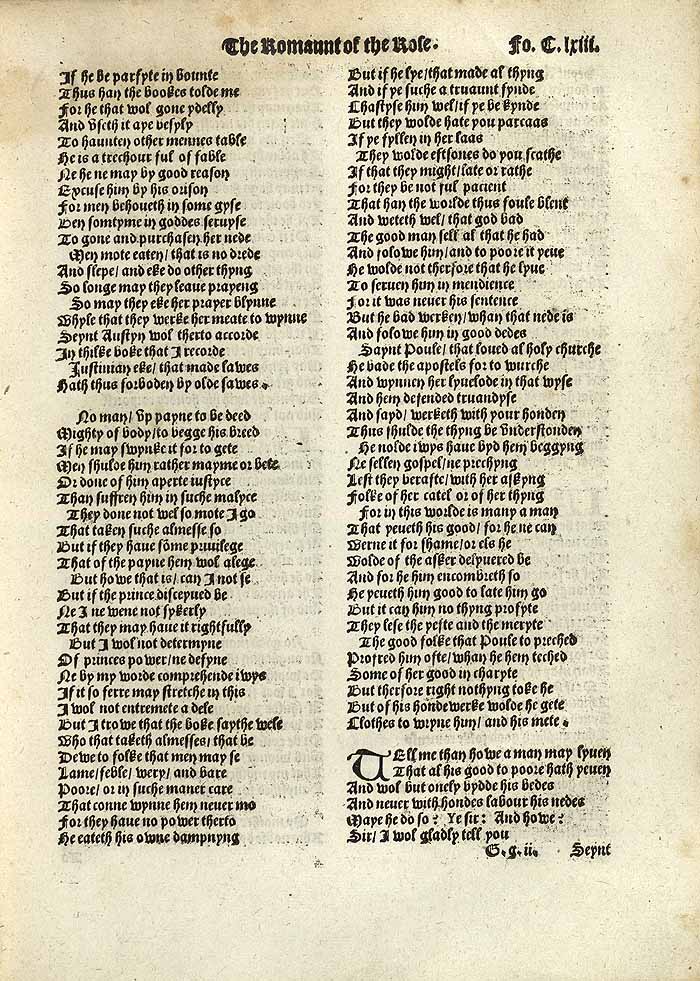 The Romaunt of the Rose. Fo. C. lxiii.
If he be parfyte in bounte
Thus han the bookes tolde me
For he that wol gone ydelly
And vseth it aye besyly
To haunten other mennes table
He is a trechour ful of fable
Ne he ne may by good reason
Excuse him by his orison
For men behoueth in some gyse
Ben somtyme in goddes seruyse
To gone and purchasen her nede
Men mote eaten/ that is no drede
And slepe/ and eke do other thyng
So longe may they leaue prayeng
So may they eke her prayer blynne
Whyle that they werke her meate to wynne
Seynt Austyn wol therto accorde
In thilke boke that I recorde
Justinian eke/ that made lawes
Hath thus forboden by olde sawes.
No man/ vp payne to be deed
Mighty of body/ to begge his breed
If he may swynke it for to gete
Men shulde him rather mayme or bete
Or done of him aperte iustyce
Than suffren him in suche malyce
They done not wel so mote I go
That taken suche almesse so
But if they haue sōme priuilege
That of the payne hem wol alege
But howe that is/ can I not se
But if the prince disceyued be
Ne I ne wene not sykerly
That they may haue it rightfully
But I wol not determyne
Of princes power/ ne defyne
Ne by my worde comprehende iwys
If it so ferre may stretche in this
I wol not entremete a dele
But I trowe that the boke saythe wele
Who that taketh almesses/ that be
Dewe to folke that men may se
Lame/ feble/ wery/ and bare
Poore/ or in suche maner care
That conne wynne hem neuer mo
For they haue no power therto
He eateth his owne dampnyng
But if he lye/ that made al thyng
And if ye suche a truaunt fynde
Chastyse him wel/ if ye be kynde
But they wolde hate you parcaas
If ye fyllen in her laas
They wolde eftsones do you scathe
If that they might/ late or rathe
For they be not ful pacient
That han the worlde thus foule blent
And weteth wel/ that god bad
The good man sell al that he had
And folowe him/ and to poore it yeue
He wolde not therfore that he lyue
To seruen him in mendience
For it was neuer his sentence
But he bad werken/ whan that nede is
And folowe him in good dedes
Saynt Poule/ that loued al holy churche
He bade the apostels for to wurche
And wynnen her lyuelode in that wyse
And hem defended truandyse
And sayd/ werketh with your honden
Thus shulde the thyng be vnderstonden
He nolde iwys haue byd hem beggyng
Ne sellen gospel/ ne prechyng
Lest they berafte/ with her askyng
Folke of her catel or of her thyng
For in this worlde is many a man
That yeueth his good/ for he ne can
Werne it for shame/ or els he
Wolde of the asker delyuered be
And for he him encombreth so
He yeueth him good to late him go
But it can him no thyng profyte
They lese the yefte and the meryte
The good folke that Poule to preched
Profred him ofte/ whan he hem teched
Some of her good in charyte
But therfore right nothyng toke he
But of his hōndewerke wolde he gete
Clothes to wryne him/ and his mete.
TEll me than howe a man may lyuen
That al his good to poore hath yeuen
And wol but onely bydde his bedes
And neuer with hondes labour his nedes
Maye he do so? Ye sir: And howe?
Sir/ I wol gladly tell you
G.g.ii. Seynt